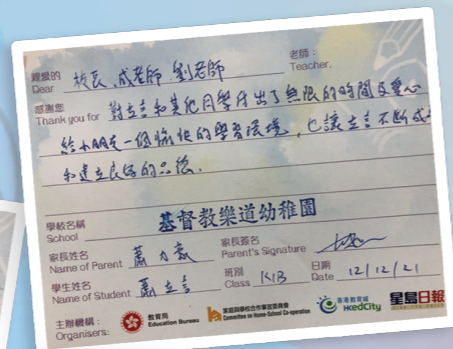 親愛的 校長,成老師,劉老師 老師:
Dear Teacher,
感謝您
Thank you for 對立言和其他同學付出了無限的時間及愛心
給小朋友一個愉快的學習環境,也讓立言不斷成
和建立良好的品德.
學校名稱
School 基督教樂道幼稚園
家長姓名 家長簽名
Name of Parent 蕭 Parent's Signature
學生姓名 班別 日期
Name of Student 蕭立言 Class K1B Date 12/12/21
主辦機構:
Organisers: 教育局 Education Bureau 家庭與學校合作事宜委員會 Committee on Home-School Co-operation 香港教育城 HKedCity 星島日報